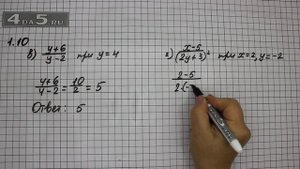 4DA5.RU
1.10
в) y+6 / y-2 при y=4
y+6 / y-2 = 10 / 2 = 5
Ответ: 5
г) x-5 / (2y+3)² при x=2, y=-2
2-5 / 2·(-